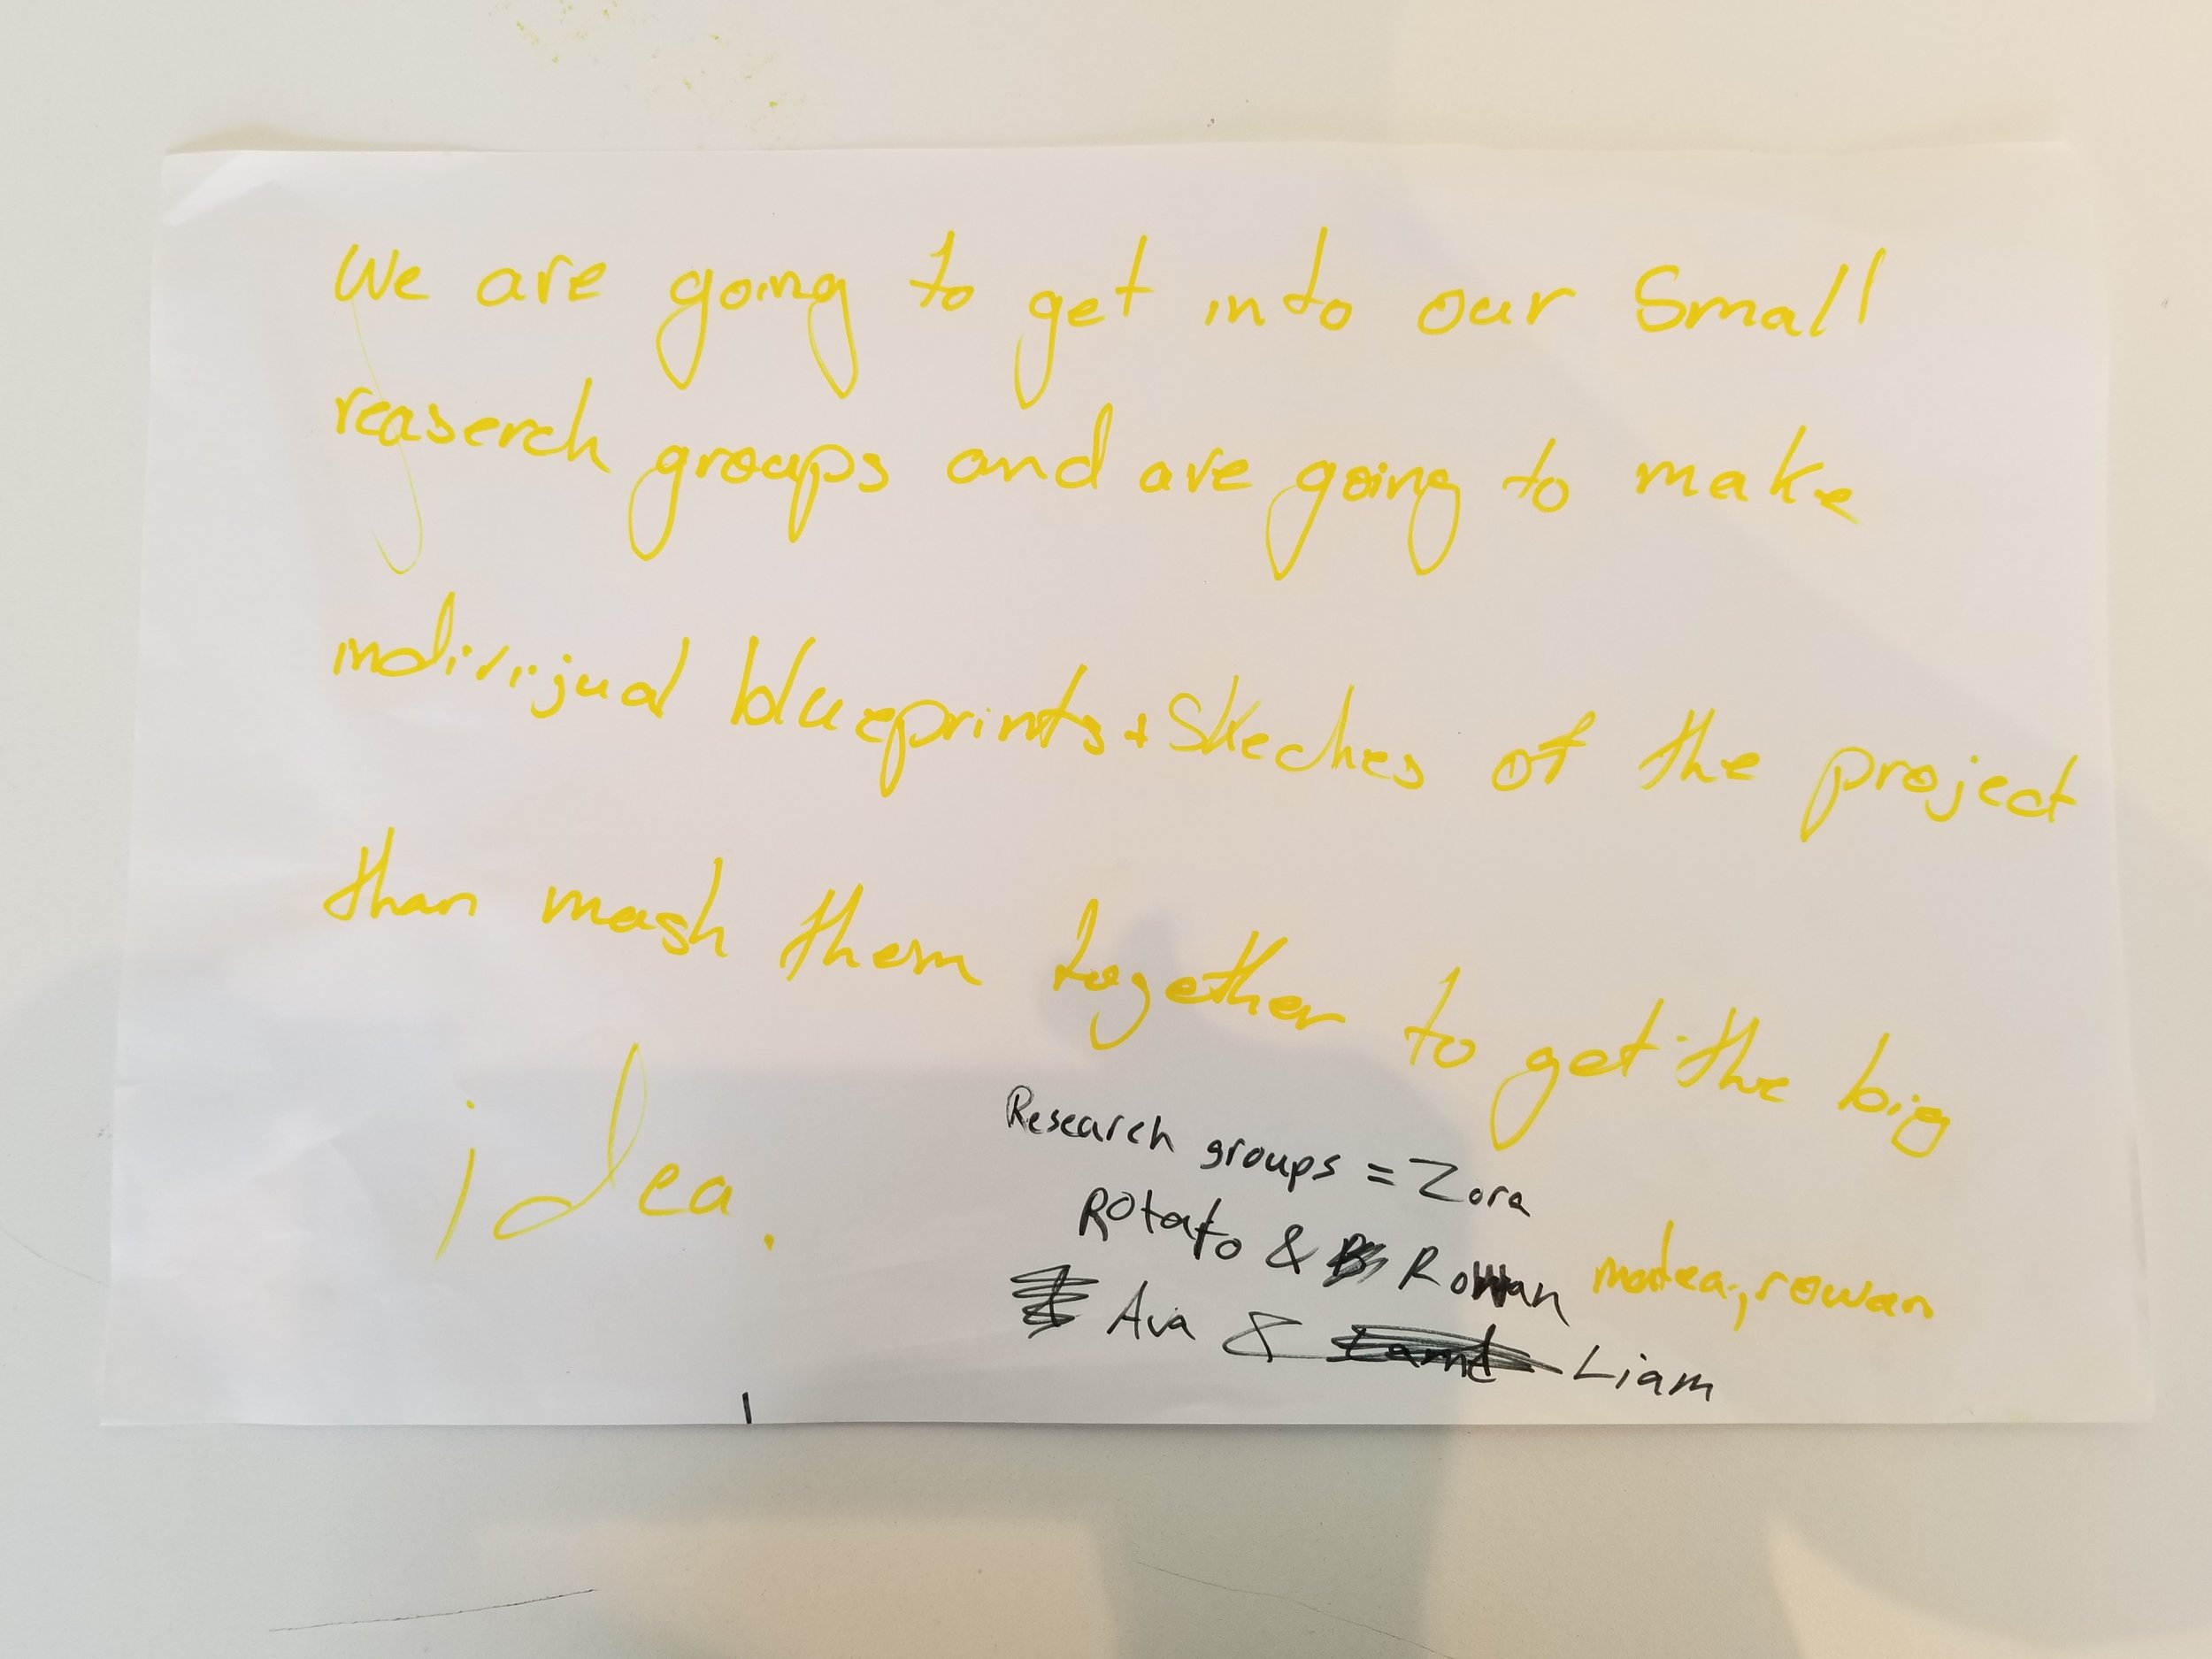 We are going to get into our Small
reaserch groups and are going to make
indivijual blueprints + Skeches of the project
than mash them together to get the big
idea.
Research groups = Zora
ROtato & Rowan matea, rowan
Ava & Liam